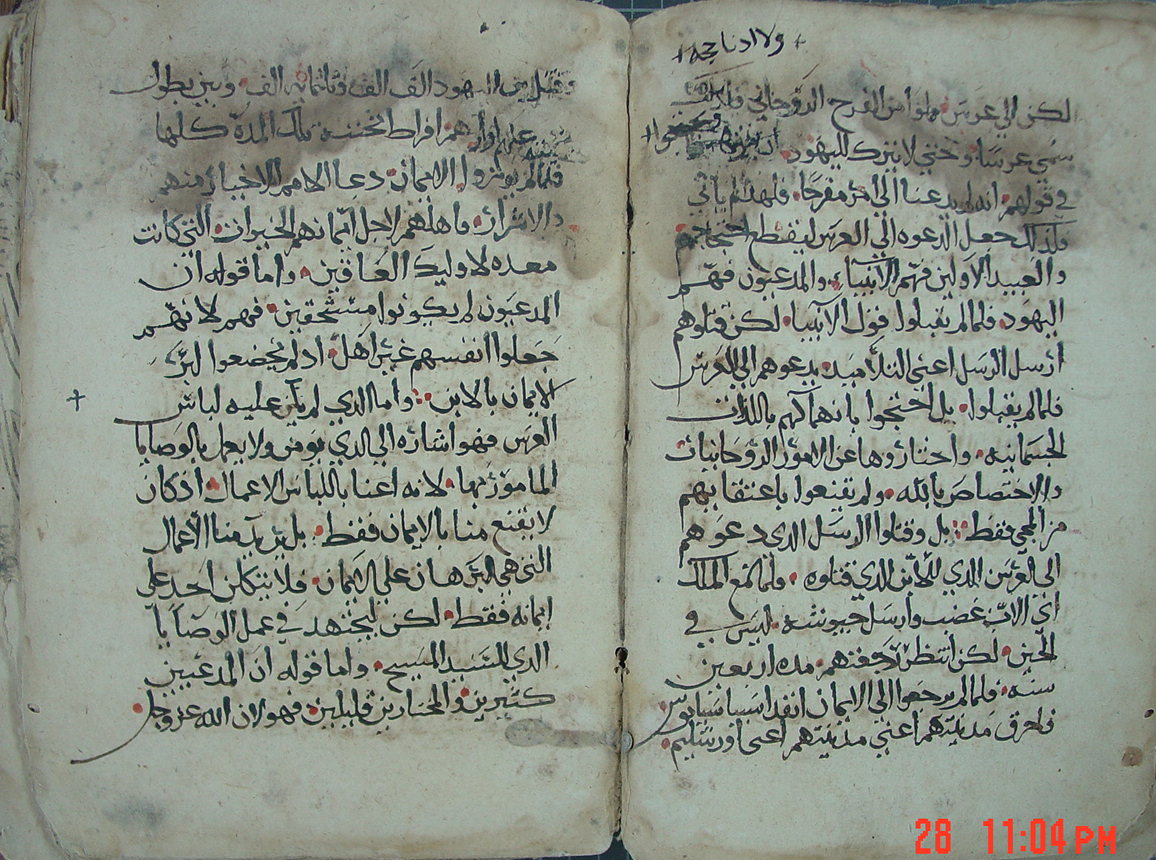 ولا ادنا حجه
لكن الي عرس مملوا من الفرح الروحاني ولذلك
سمي عرسا وحتي لا يترك لليهود ان
في قولهم انه لم يدعنا الي امر مفرحا فلهذا لم ياتي
ولذلك جعل الدعوه الي العرس ليقطع احتجاجهم
والعبيد الاولين فهم الانبياء والمدعيون فهم
اليهود فلما لم يقبلوا قول الانبيا لكن قتلوهم
ارسل الرسل اعني التلاميد يدعوهم الي العرس
فلما لم يقبلوا بل احتجوا بانهماكهم باللذات
الجسمانيه واختاروها عن الامور الروحانيات
والاختصاص بالله ولم يقنعوا باعتقابهم
من المجي فقط بل وقتلوا الرسل الدي دعوهم
الي العرس الدي للابن الدي قتلوه ولما سمع الملك
اي الاب غضب وارسل جيوشه ليس في
الحين لكن انتظر رجعتهم مده اربعين
سنه فلما لم يرجعوا الي الايمان انفد اسباسيانوس
فاحرق مدينتهم اعني مدينتهم اورشليم
وقتل من اليهود الف الف وثلثمايه الف وبين بطول
تلك المدة كلها
فلما لم يوثروا الايمان دعا الامم الاخيار منهم
والاشرار فاهلهم لاجل ايمانهم الخيرات التي كانت
معده لاوليك العاقين واما قوله ان
المدعيون لم يكونوا مستحقين فهم لانهم
جعلوا انفسهم غير اهل اد لم يخضعوا لبر
الايمان بالابن واما الدي لم ير عليه لباس
العرس فهو اشاره الي الدي يومن ولا يعمل بالوصايا
المامور بها لانه اعنا باللباس الاعمال اد كان
لا يقنع منا بالايمان فقط بل يريد منا الاعمال
التي هي البرهان علي الايمان فلا يتكلن احد علي
ايمانه فقط لكن ليجتهد في عمل الوصايا
الدي للسيد المسيح واما قوله ان المدعيين
كثيرين والمختارين قليلين فهو لان الله عز وجل
28 11:04 PM